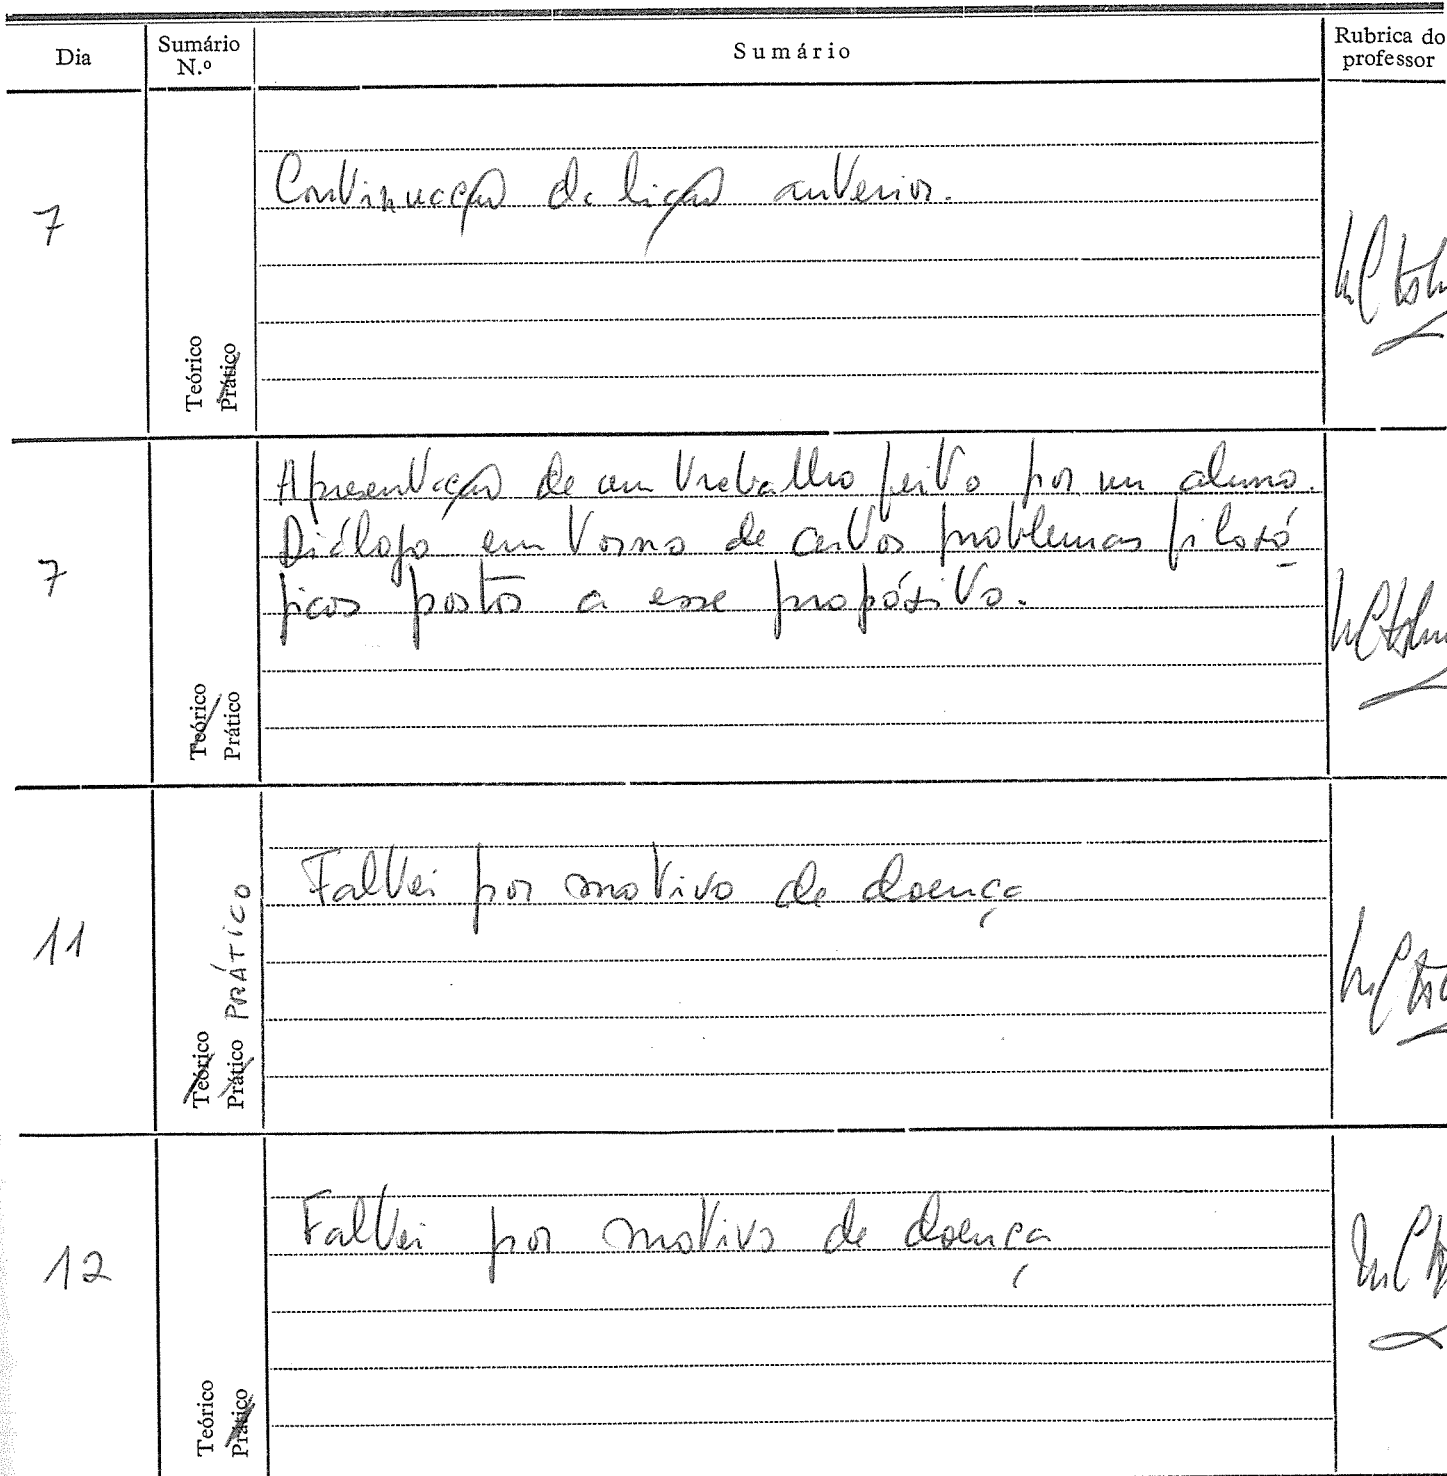 Dia
Sumário N.º
Sumário
Rubrica do professor
7
Teórico
Prático
Continuação da lição anterior.
7
Teórico
Prático
Apresentação de um trabalho feito por um aluno.
Diálogo em torno de certos problemas filosó
ficos postos a esse propósito.
11
Teórico
Prático PRÁTICO
Faltei por motivo de doença
12
Teórico
Prático
Faltei por motivo de doença